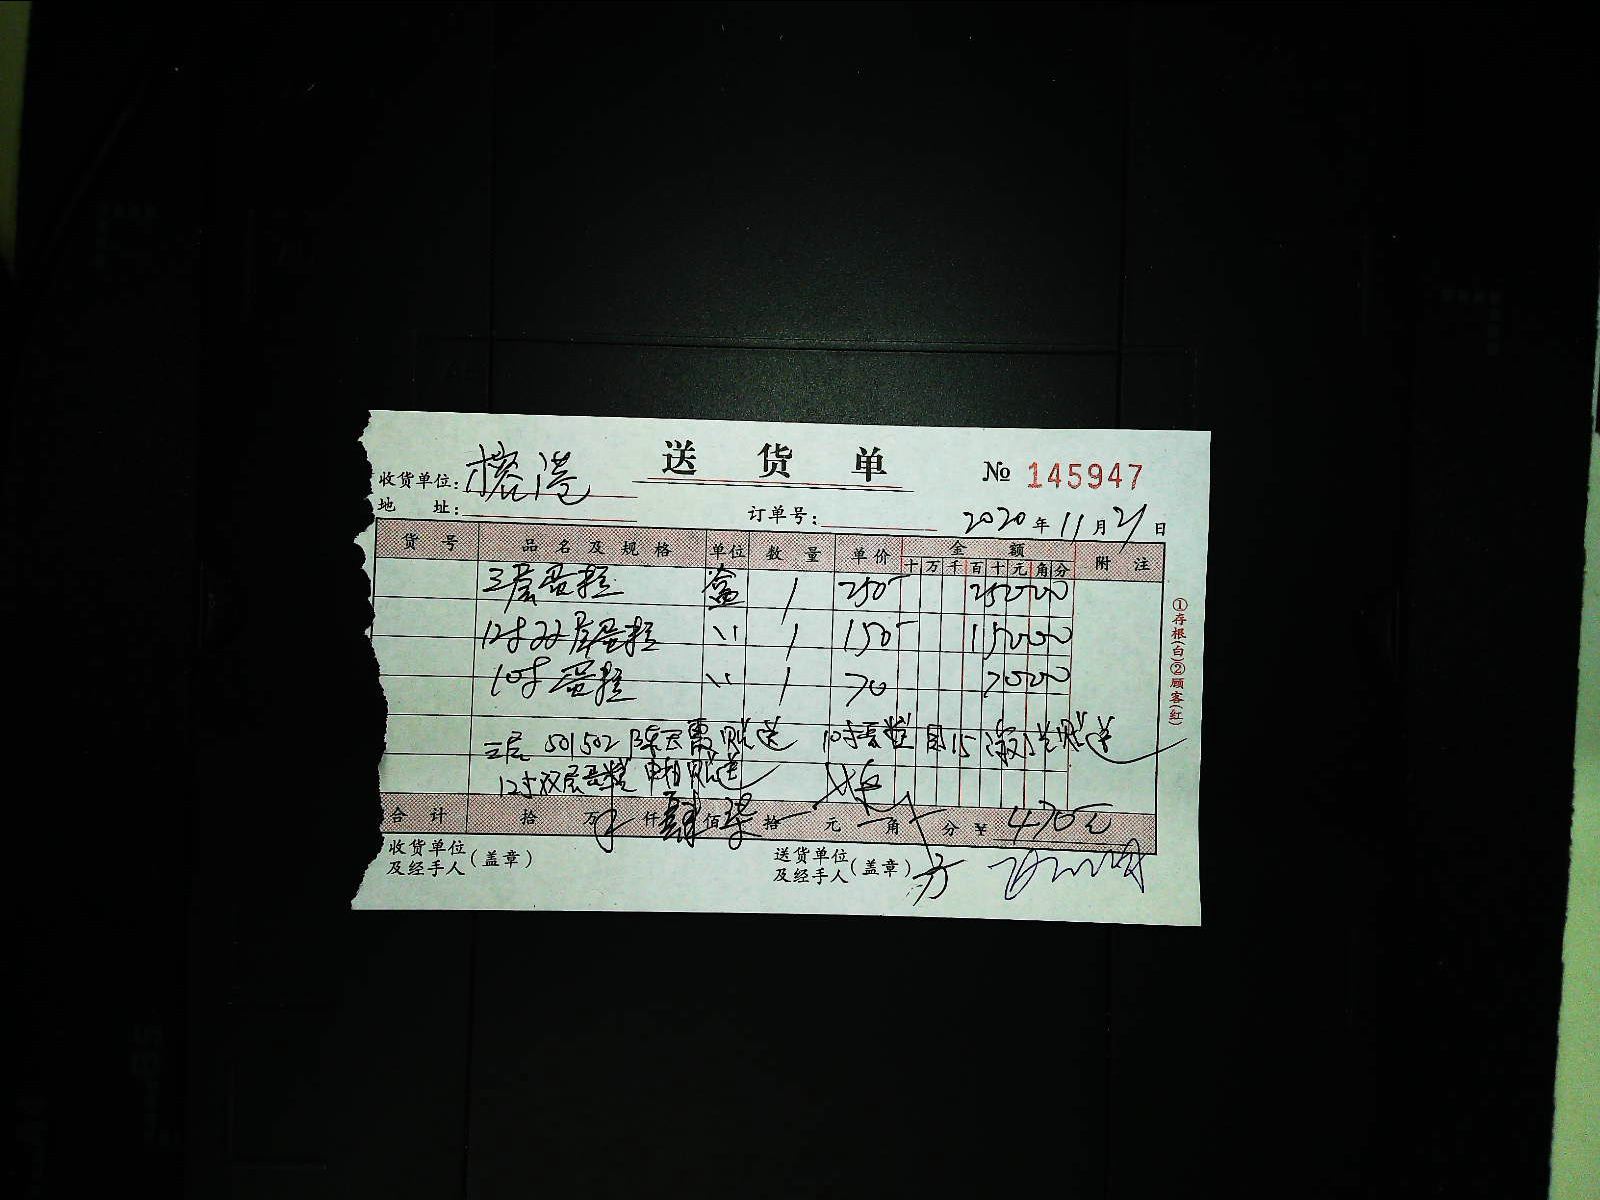 送货单
№ 145947
收货单位: 榕港
地址: 订单号: 2020年11月21日
货号 品名及规格 单位 数量 单价 金额 附注
十万千百十元角分
三层蛋糕 盒 1 250 25000
12寸双层蛋糕 〃 1 150 15000
10寸蛋糕 〃 1 70 7000
三层 501 502 陈 霞赠送 10寸蛋糕 赠送
12寸双层蛋糕 赠送
合计 拾 万 仟 肆佰柒拾 元 角 分 ¥ 470元
收货单位及经手人(盖章) 送货单位及经手人(盖章)
①存根(白)②顾客(红)